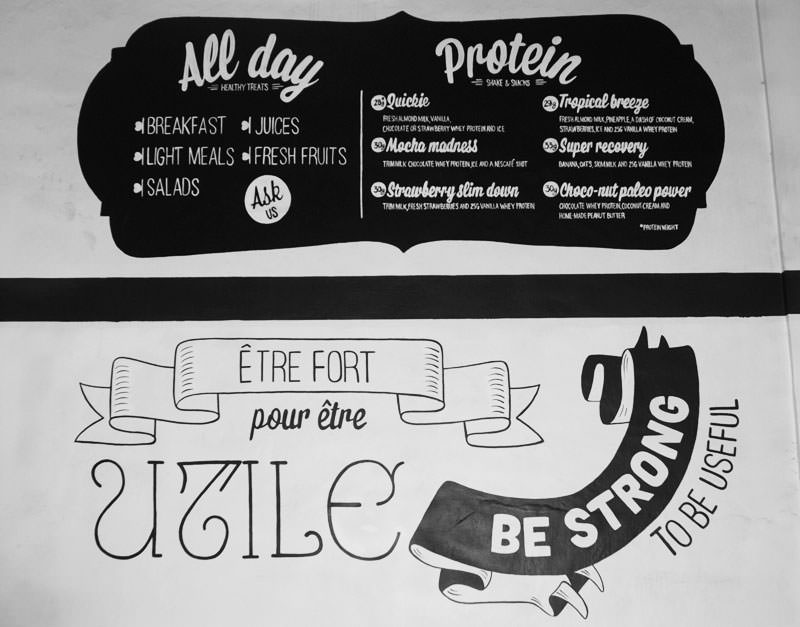 All day
HEALTHY TREATS
BREAKFAST
LIGHT MEALS
SALADS
JUICES
FRESH FRUITS
Ask
US
Protein
SHAKE & SNACKS
28g Quickie
FRESH ALMOND MILK, VANILLA,
CHOCOLATE OR STRAWBERRY WHEY PROTEIN AND ICE
30g Mocha madness
TRIM MILK, CHOCOLATE WHEY PROTEIN, ICE AND A NESCAFÉ SHOT
32g Strawberry slim down
TRIM MILK, FRESH STRAWBERRIES AND 25G VANILLA WHEY PROTEIN
29g Tropical breeze
FRESH ALMOND MILK, PINEAPPLE, A DASH OF COCONUT CREAM,
STRAWBERRIES, ICE AND 25G VANILLA WHEY PROTEIN
35g Super recovery
BANANA, OATS, SKIM MILK AND 25G VANILLA WHEY PROTEIN
30g Choco-nut paleo power
CHOCOLATE WHEY PROTEIN, COCONUT CREAM AND
HOME-MADE PEANUT BUTTER
*PROTEIN WEIGHT
ÊTRE FORT
pour être
UTILE
BE STRONG
TO BE USEFUL